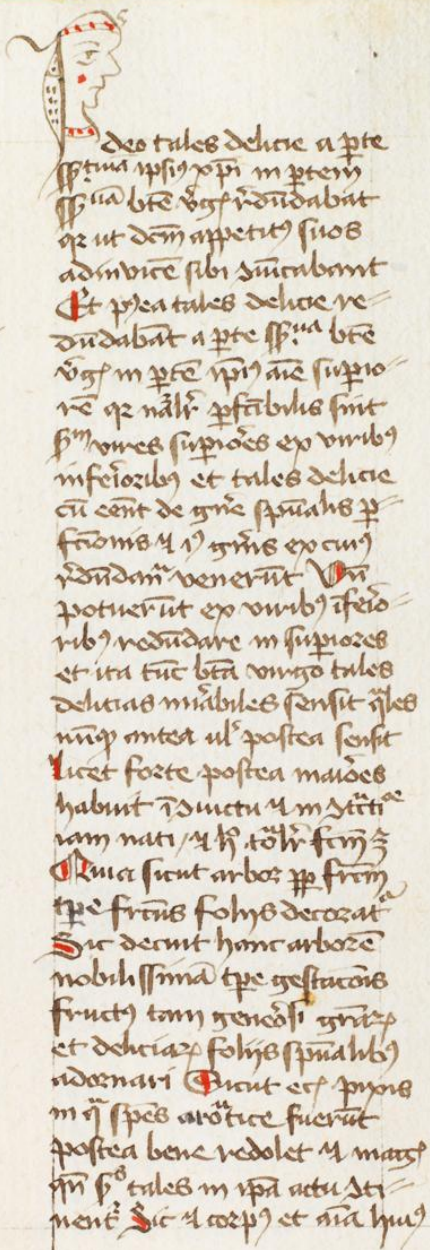 Ideo tales delicie a p̲te
sp̄s tiua ipsiꝰ xp̄i in p̲tem
b̄te v̊gꝭ r̄dūdabāt
qꝛ ut dc̄m appetitꝰ suos
adinuicē sibi ꝯīcabant
Et tales delicie re⸗
dūdabāt a p̲te b̄te
v̊gꝭ in p̲tē ip̄iꝰ aīe sup̲io⸗
rē qꝛ nālr̄ p̲fcībilis sūt
vires sup̲ioēs ex viribꝰ
inferioribꝰ et tales delicie
cū eēnt de gn̄e spūalis p̲⸗
fcionis ⁊
r̄dūdan̄ venerūt Vn̄
potuerūt ex viribꝰ īferio⸗
ribꝰ redūdare in sup̲iores
et ita tūc b̄ta virgo tales
delicias mirabiles sensit q̄les
nūqꝫ antea ul̛ postea sensit
licet forte postea maioēs
habuit ī ꝯuictu ⁊ in
iam nati ⁊
Quia sicut arbor pp̲ frcm̄
tp̲e frcūs folijs decoratᷣ
Sic decuit hanc arborē
nobilissimā tp̲e gestacōis
fructꝰ tam geneosi grāꝝ
et deliciaꝝ folijs spūalibꝰ
adornari Sicut ecꝭ pixis
in q̄ spēs aroātice fuerūt
postea bene redolet ⁊ magꝭ
qn̄ tales in ip̄a actu ꝯti⸗
nentᷣ Sic ⁊ corpꝰ et aīa huiꝰ